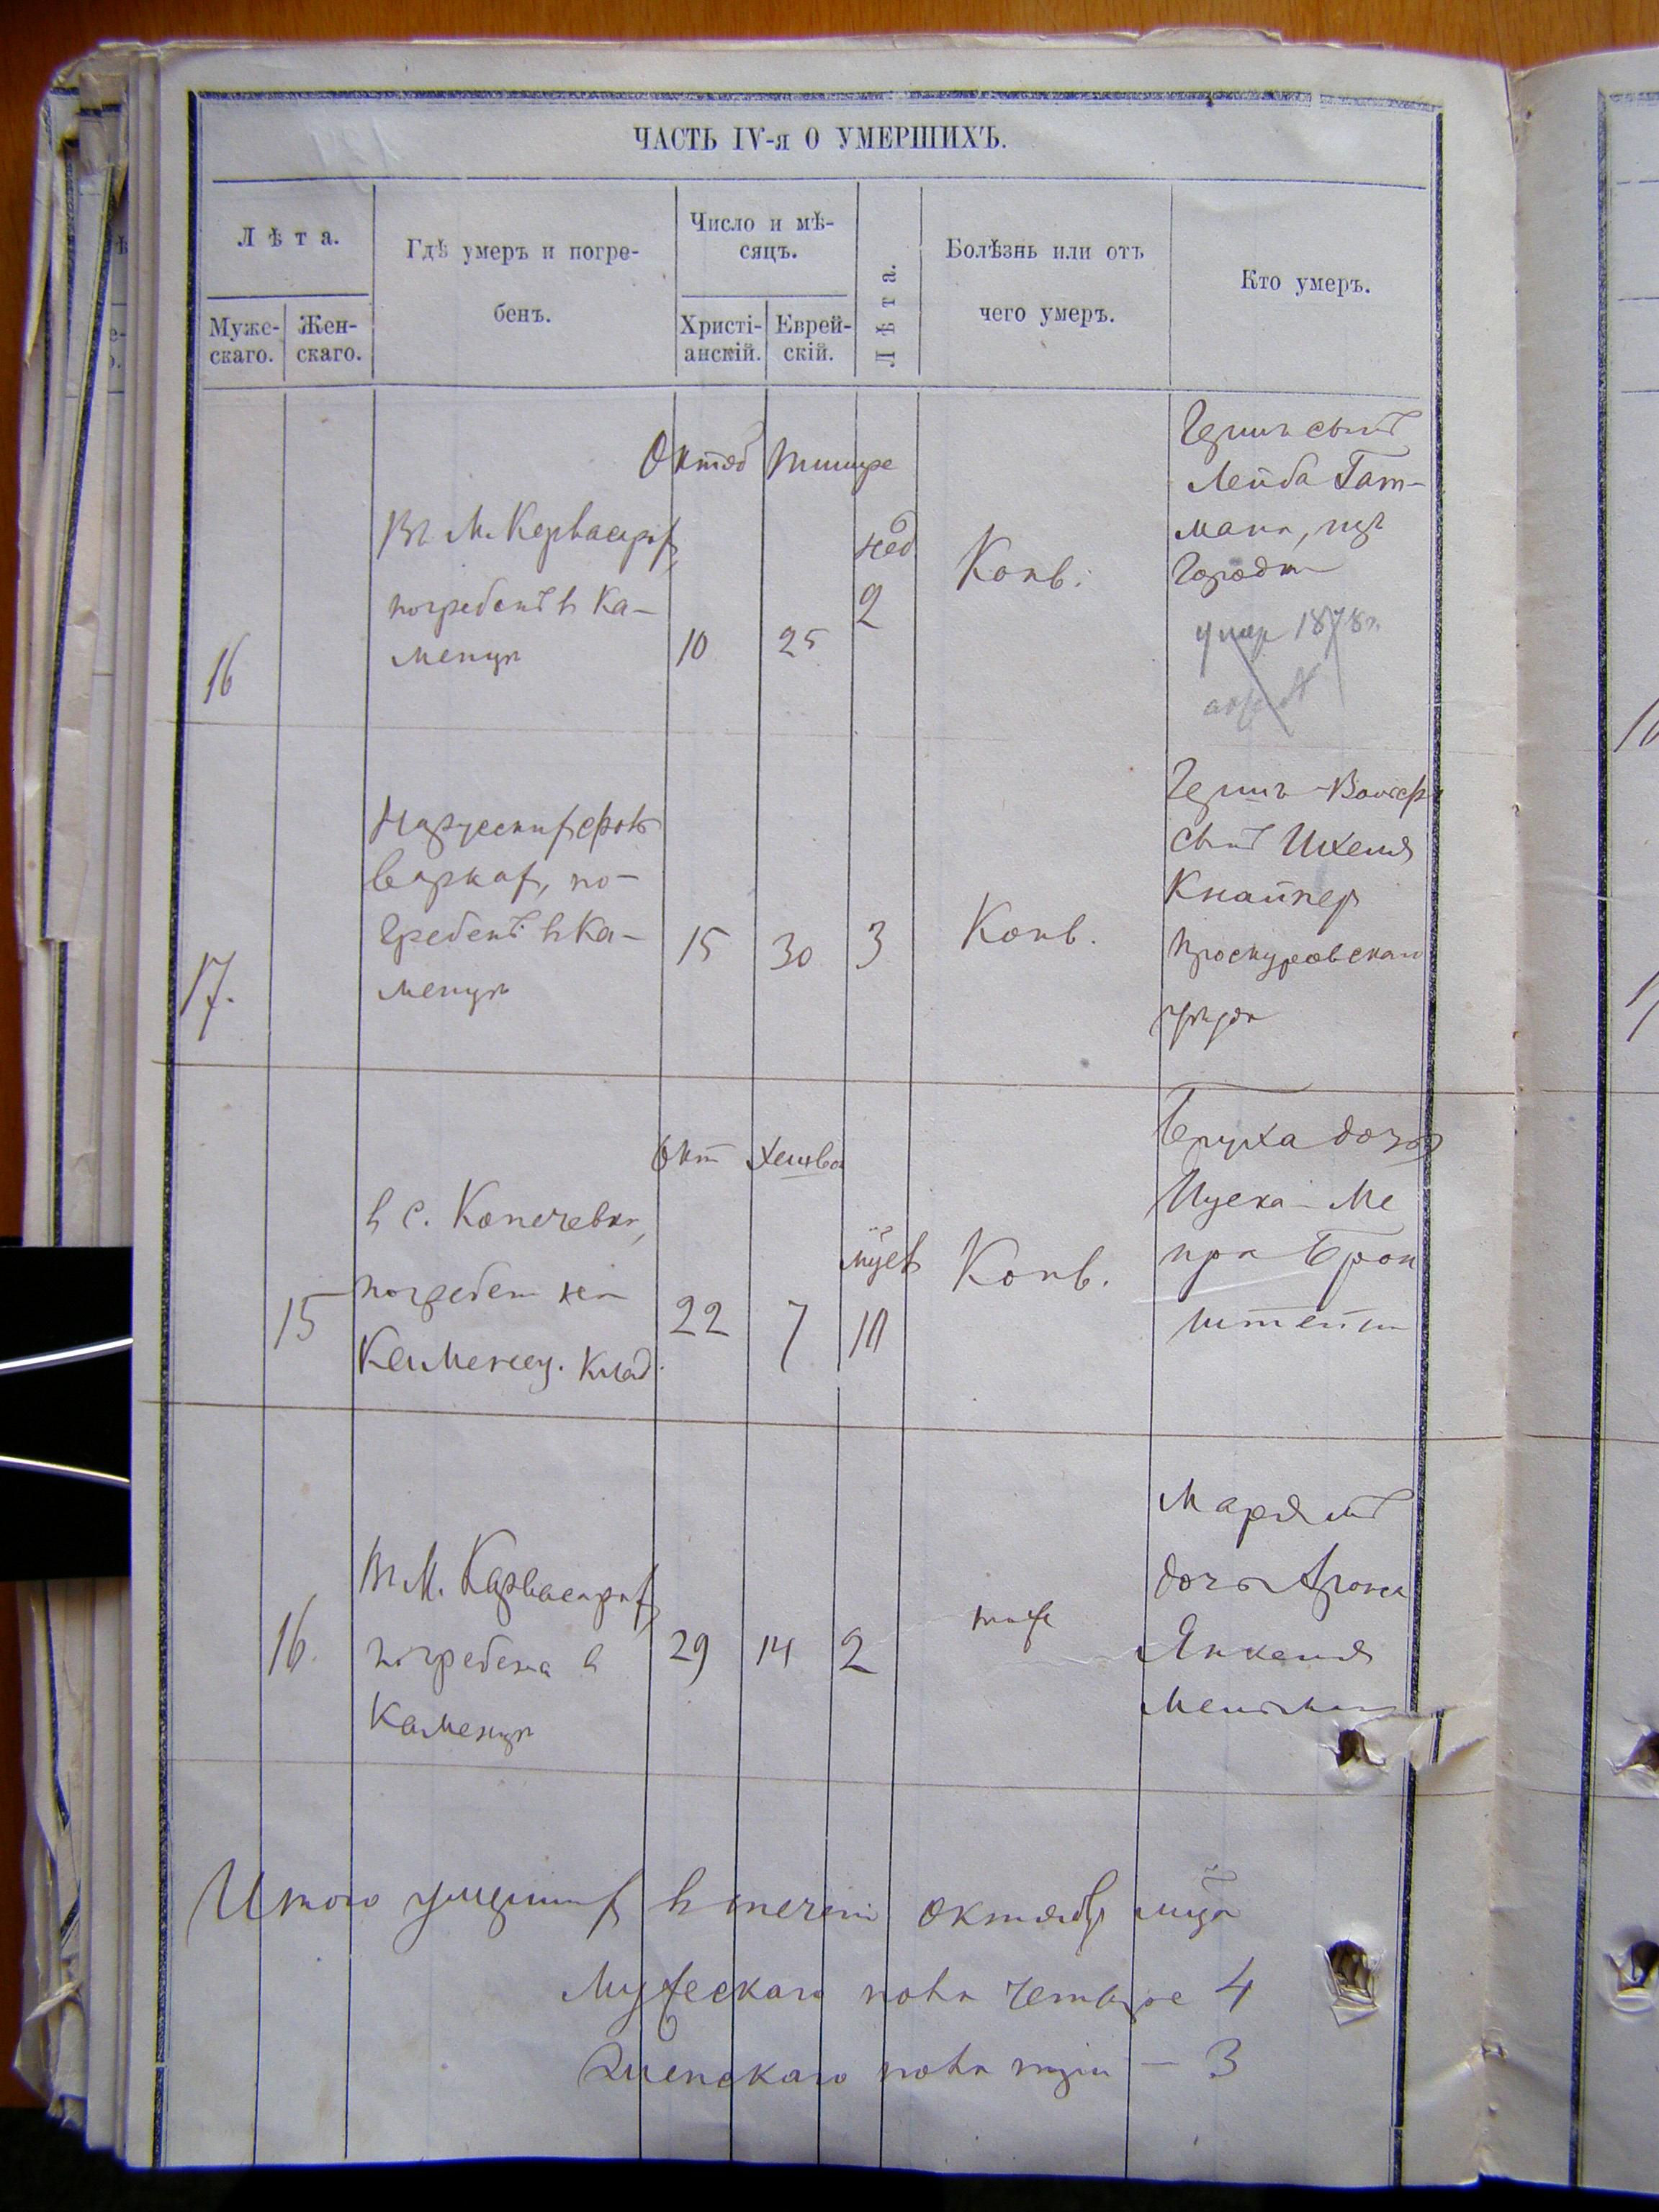 ЧАСТЬ IV-я О УМЕРШИХЪ.
Лѣта.
Муже-
скаго.
Жен-
скаго.
Гдѣ умеръ и погре-
бенъ.
Число и мѣ-
сяцъ.
Христі-
анскій.
Еврей-
скій.
Лѣта.
Болѣзнь или отъ
чего умеръ.
Кто умеръ.
16
Въ М. Карвасарах,
погребенъ в Ка-
менцѣ
Октяб
10
Тишре
25
нед
2
Конв.
Гершъ сынъ
Лейба Гат-
мана, изъ
Городк
умер 1878 г.
17.
фоль
варках, по-
гребенъ в Ка-
менцѣ
15
30
3
Конв.
Гершъ-Вольф
сынъ Ихеля
Кнайпер
Проскуровскаго
уѣзда
15
в с. Копечевкѣ,
погребен на
Каменец. клад.
Окт
22
Хешван
7
мцев
10
Конв.
Бруха дочь
Ицска-Ме
ера Брон
штейн
16.
Въ М. Карвасарах,
погребена в
Каменцѣ
29
14
2
тиф
Маріямъ
дочь Арона
Янкеля
Мельман
Итого умерших в течении октября мца
Мужескаго пола четыре 4
Женскаго пола три — 3